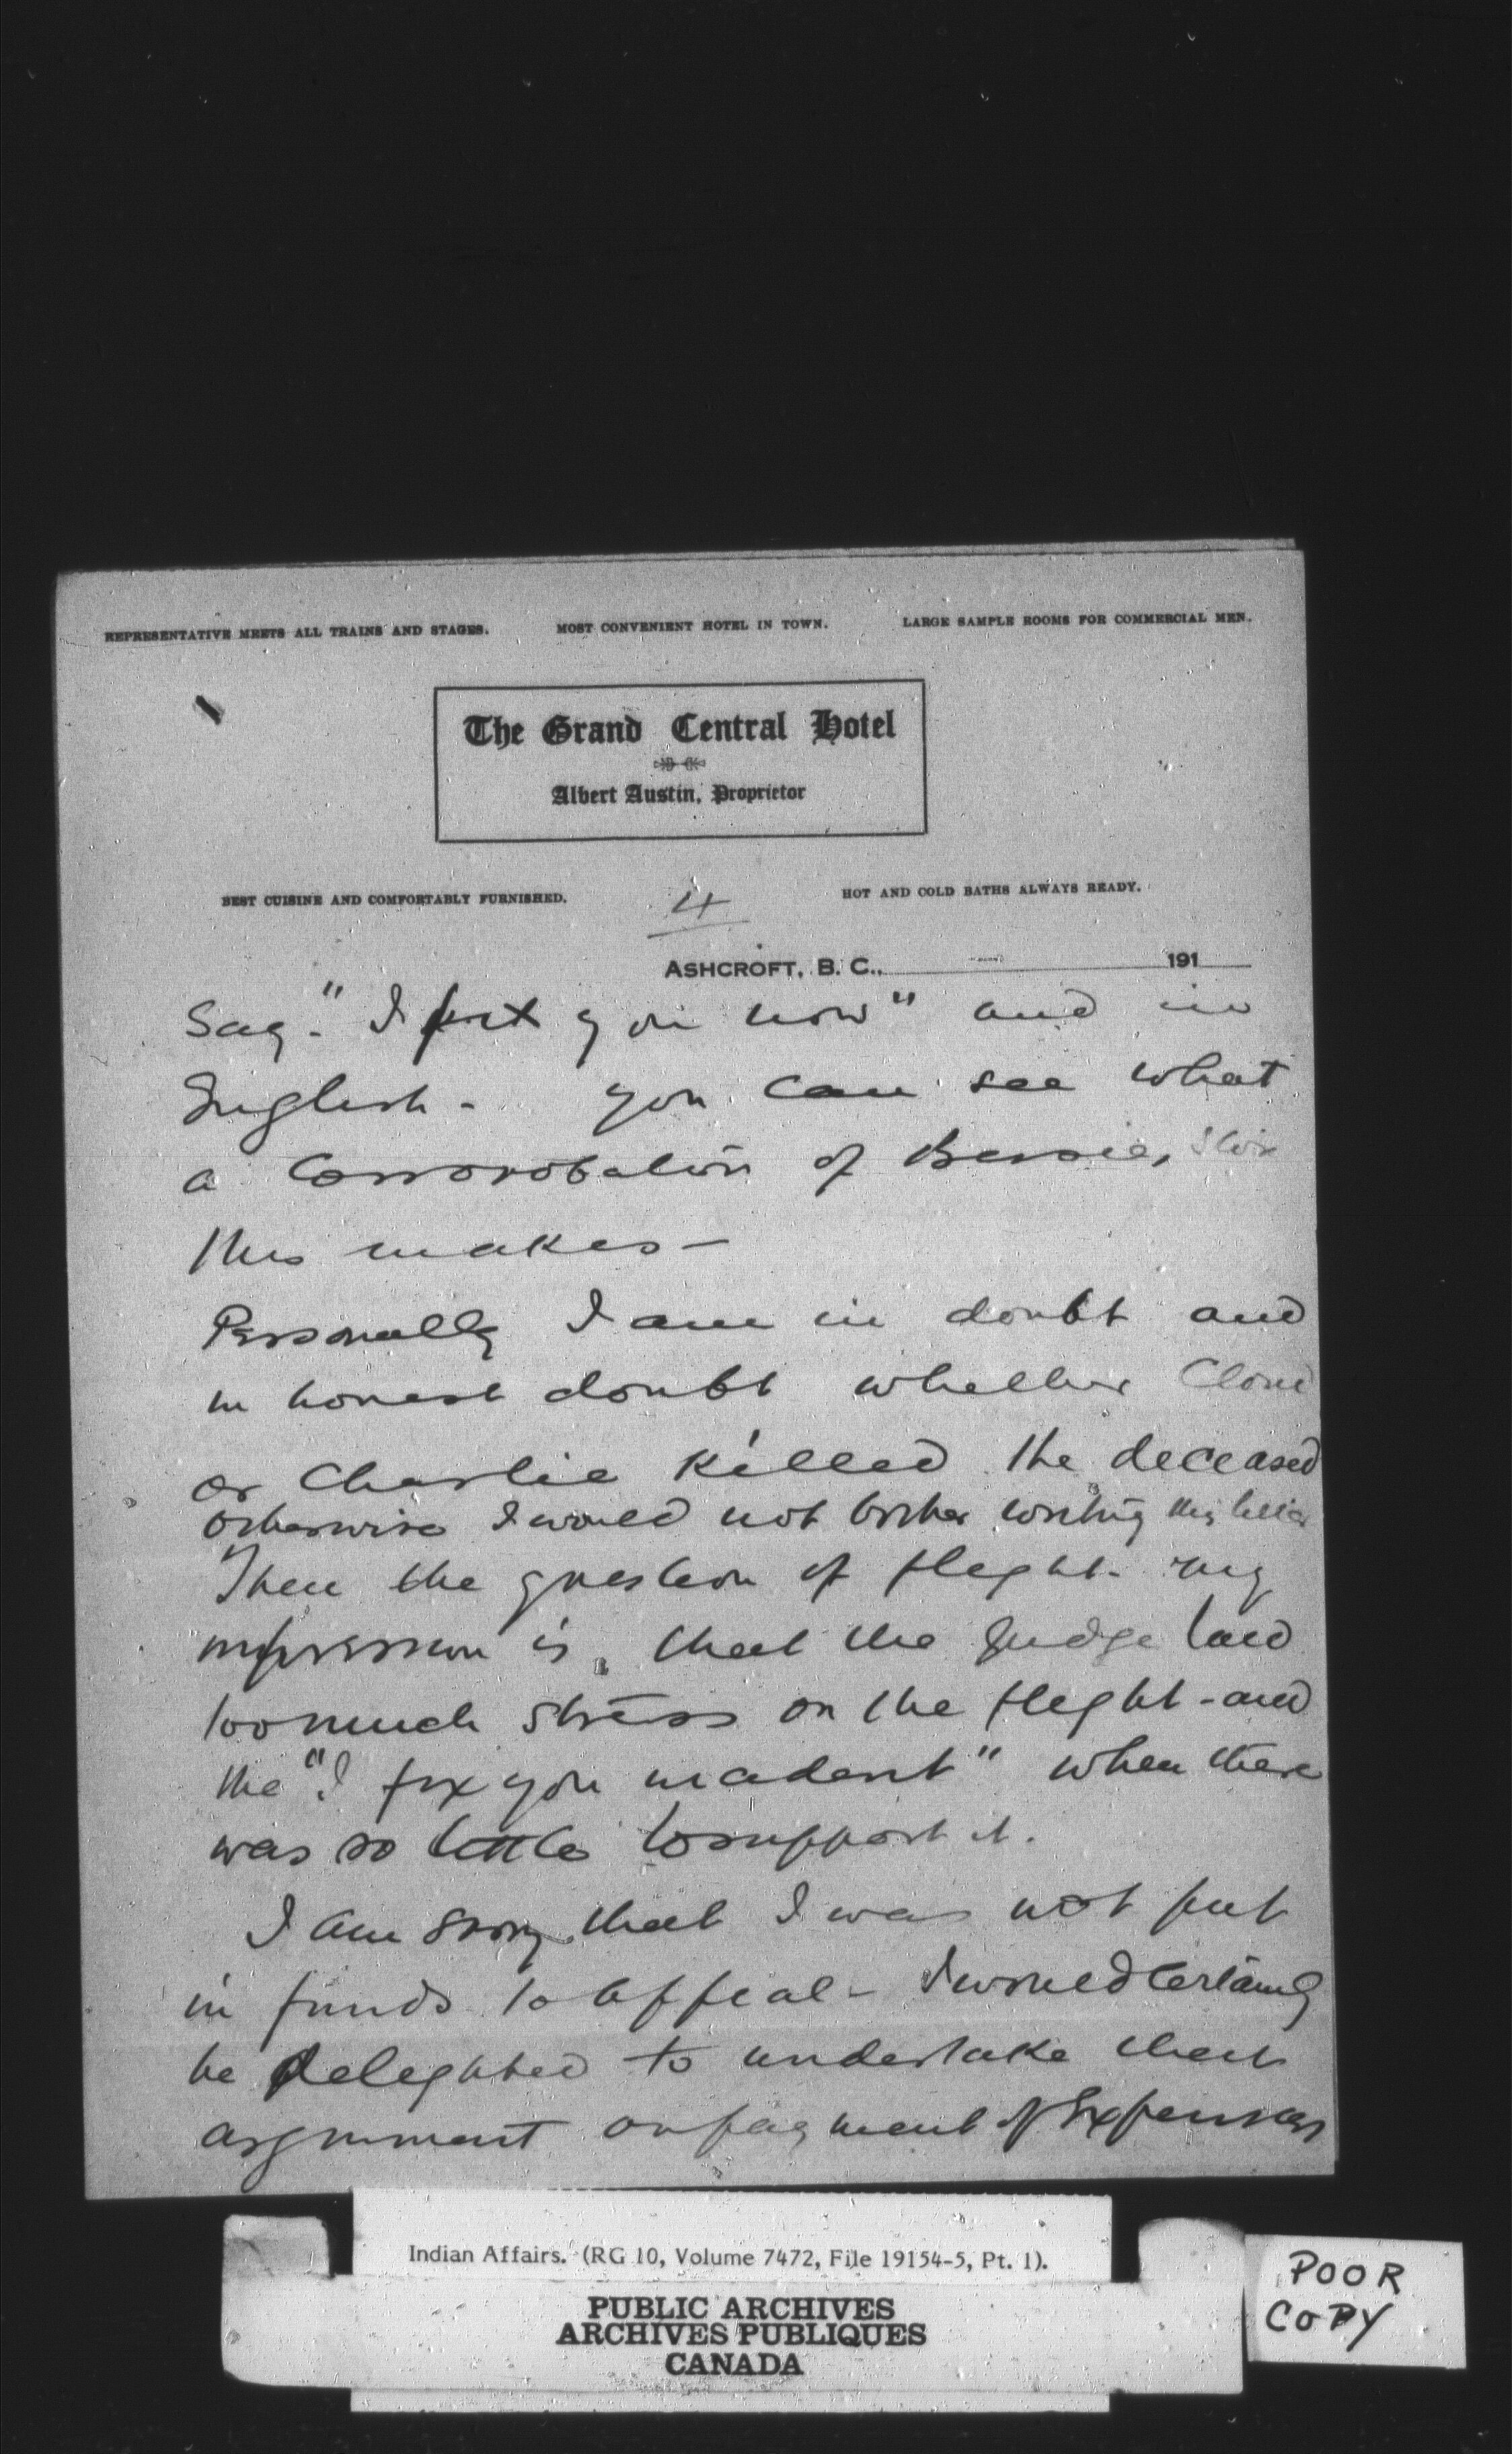 REPRESENTATIVE MEETS ALL TRAINS AND STAGES. MOST CONVENIENT HOTEL IN TOWN. LARGE SAMPLE ROOMS FOR COMMERCIAL MEN.
The Grand Central Hotel
Albert Austin, Proprietor
BEST CUISINE AND COMFORTABLY FURNISHED. 4 HOT AND COLD BATHS ALWAYS READY.
ASHCROFT, B. C., 191
Say - "I you now" and in
English - you can see what
a Corroboration of Bessie,
this makes -
Personally I am in doubt and
in honest doubt whether
or Charlie killed the deceased
otherwise I would not bother writing this letter
Then the question of flight - my
impression is, that the Judge laid
too much stress on the flight - and
the "I fix you " when there
was so little to support it.
I am sorry that I was not put
in funds to appeal - I would certainly
be delighted to undertake
argument on payment of Expenses
Indian Affairs. (RG 10, Volume 7472, File 19154-5, Pt. 1).
PUBLIC ARCHIVES
ARCHIVES PUBLIQUES
CANADA
POOR
COPY